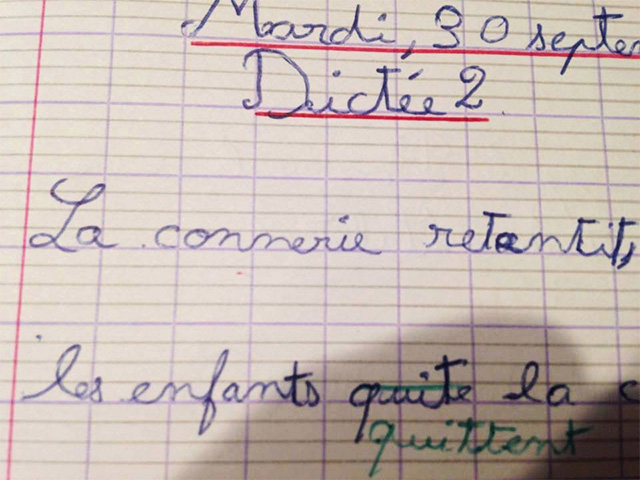 Mardi, 30 septem
Dictée 2
La connerie retantit,
les enfants quite la c
quittent